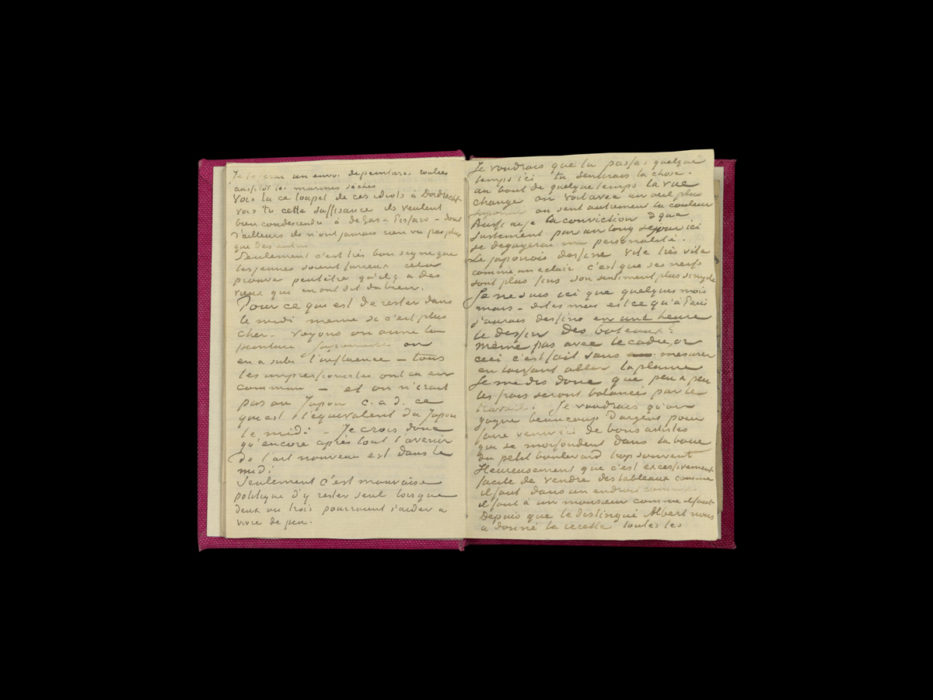 Je te ferai un envoi de peintures roulées
aussitôt les marines sèches
Vois tu ce toupet de ces idiots à Dordrecht
vois tu cette suffisance ils veulent
bien condescendre à degas & Pissaro – dont
d'ailleurs ils n'ont jamais rien vu pas plus
que des autres
Seulement c'est très bon signe que
les jeunes soient furieux cela
prouve peutêtre qu'il y a des
vieux qui en ont dit du bien.
Pour ce qui est de rester dans
le midi meme si c'est plus
cher – Voyons on aime la
peinture japonaise on
en a subi l'influence – tous
les impressionistes ont ca en
commun – et on n'irait
pas au Japon c.a.d. ce
qui est l'équivalent du Japon
le midi – Je crois donc
qu'encore après tout l'avenir
de l'art nouveau est dans le
midi
Seulement c'est mauvaise
politique d'y rester seul lorsque
deux ou trois pourraient s'aider a
vivre de peu.
Je voudrais que tu passes quelque
temps ici tu sentirais la chose –
au bout de quelque temps la vue
change on voit avec un oeil plus
japonais on sent autrement la couleur
Aussi ai je la conviction que
justement par un long sejour ici
se dégagera ma personalité.
Le japonais dessine vite très vite
comme un eclair c'est que ses nerfs
sont plus fins son sentiment plus simple
Je ne suis ici que quelques mois
mais – dites moi est ce qu'à Paris
j'aurais dessiné en une heure
le dessin des bateaux ?
même pas avec le cadre, or
ceci c'est fait sans mesurer
en laissant aller la plume
Je me dis donc que peu a peu
les frais seront balancés par le
travail. Je voudrais qu'on
gagne beaucoup d'argent pour
faire venir ici de bons artistes
qui se morfondent dans la boue
du petit boulevard trop souvent
Heureusement que c'est excessivement
facile de vendre des tableaux comme
il faut dans un endroit comme
il faut à un monsieur comme il faut
Depuis que le distingué Albert nous
a donné la recette toutes les